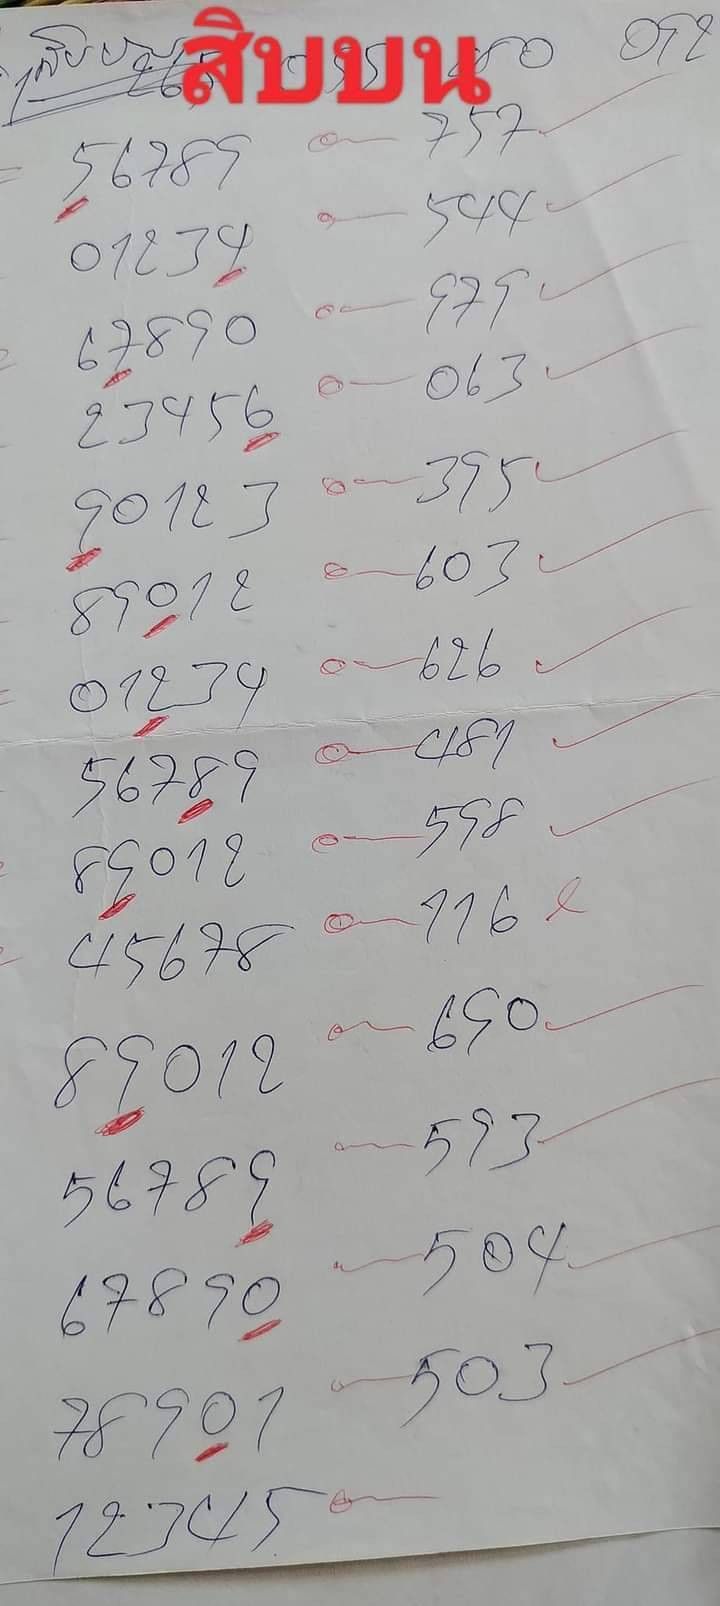 สิบบน
092
56789 757
01234 544
67890 979
23456 063
90123 395
89012 603
01234 626
56789 481
89012 598
45678 116
89012 690
56789 593
67890 504
78901 503
12345